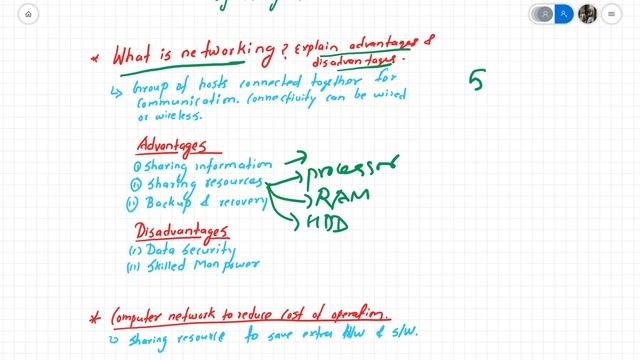 * What is networking? Explain advantages &
disadvantages.
↳ Group of hosts connected together for
communication. Connectivity can be wired
or wireless.
5
Advantages
(i) Sharing information
(ii) Sharing resources
(ii) Backup & recovery
processor
RAM
HDD
Disadvantages
(i) Data Security
(ii) Skilled Man power
* Computer network to reduce cost of operation.
↳ Sharing resource to save extra H/w & S/W.